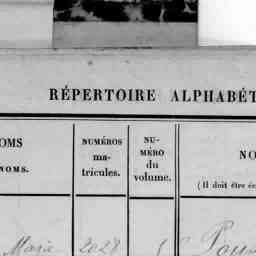 RÉPERTOIRE ALPHABÉT
OMS
NOMS.
NUMÉROS
ma-
tricules.
NU-
MÉRO
du
volume.
NO
(Il doit être éc
Marie 2028